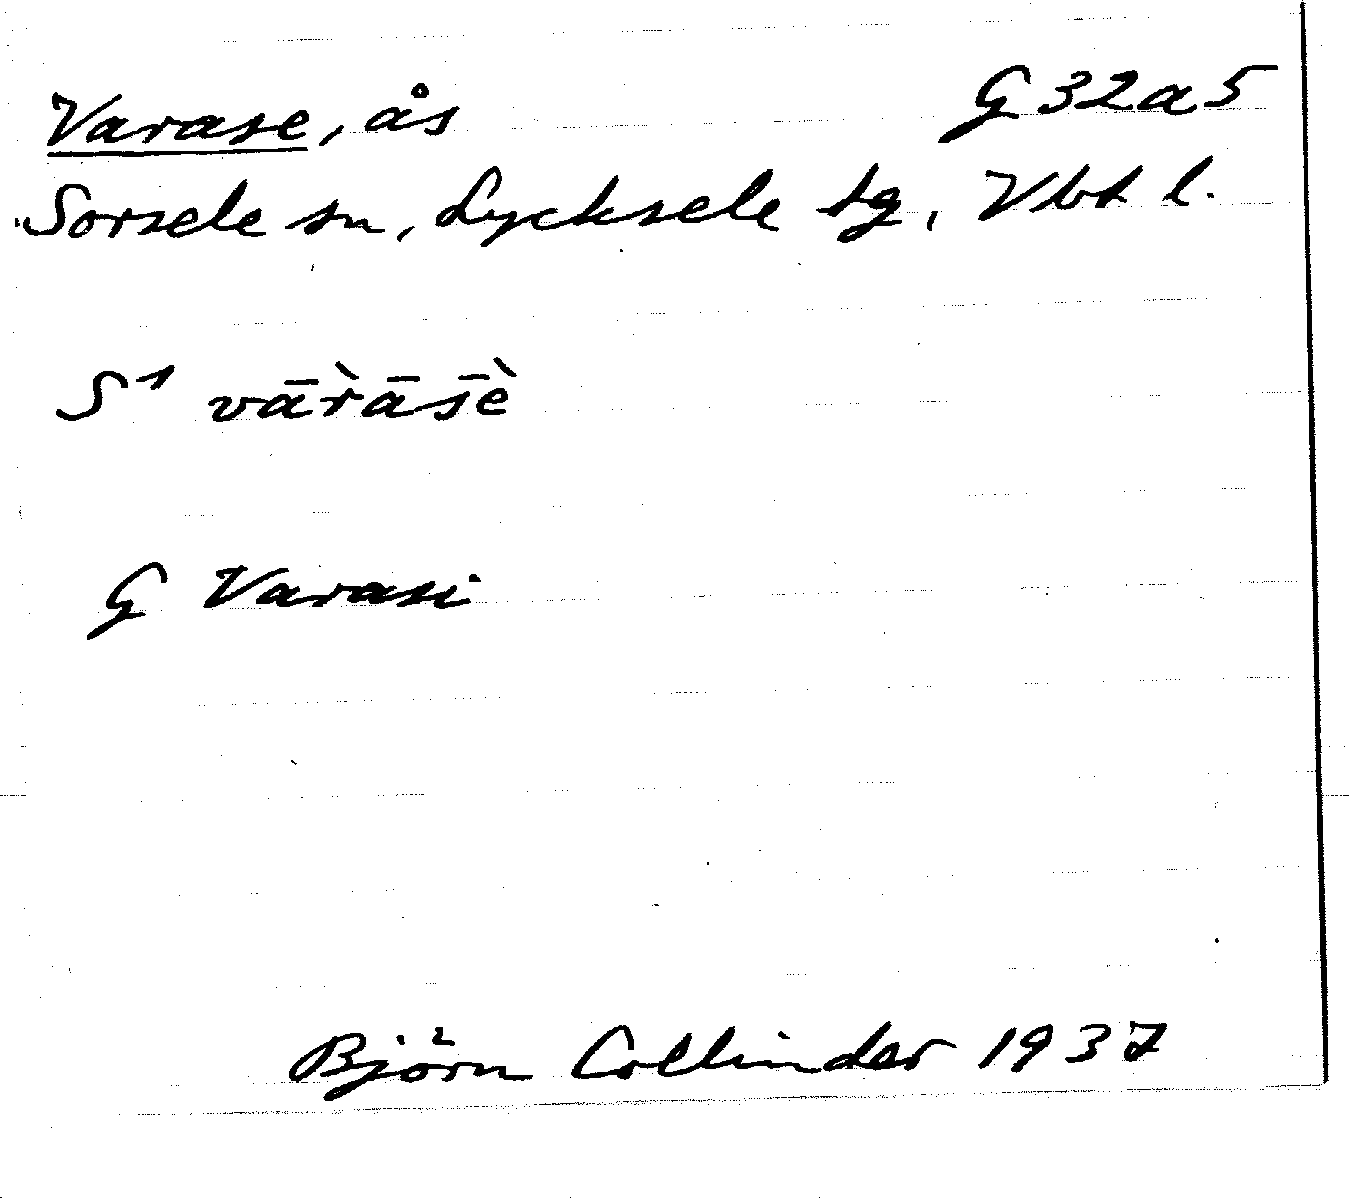 Varase, ås G 32 a 5
Sorsele sn, Lycksele tg, Vbt l.
S¹ vār̀āsḕ
G Varasi
Björn Collinder 1937